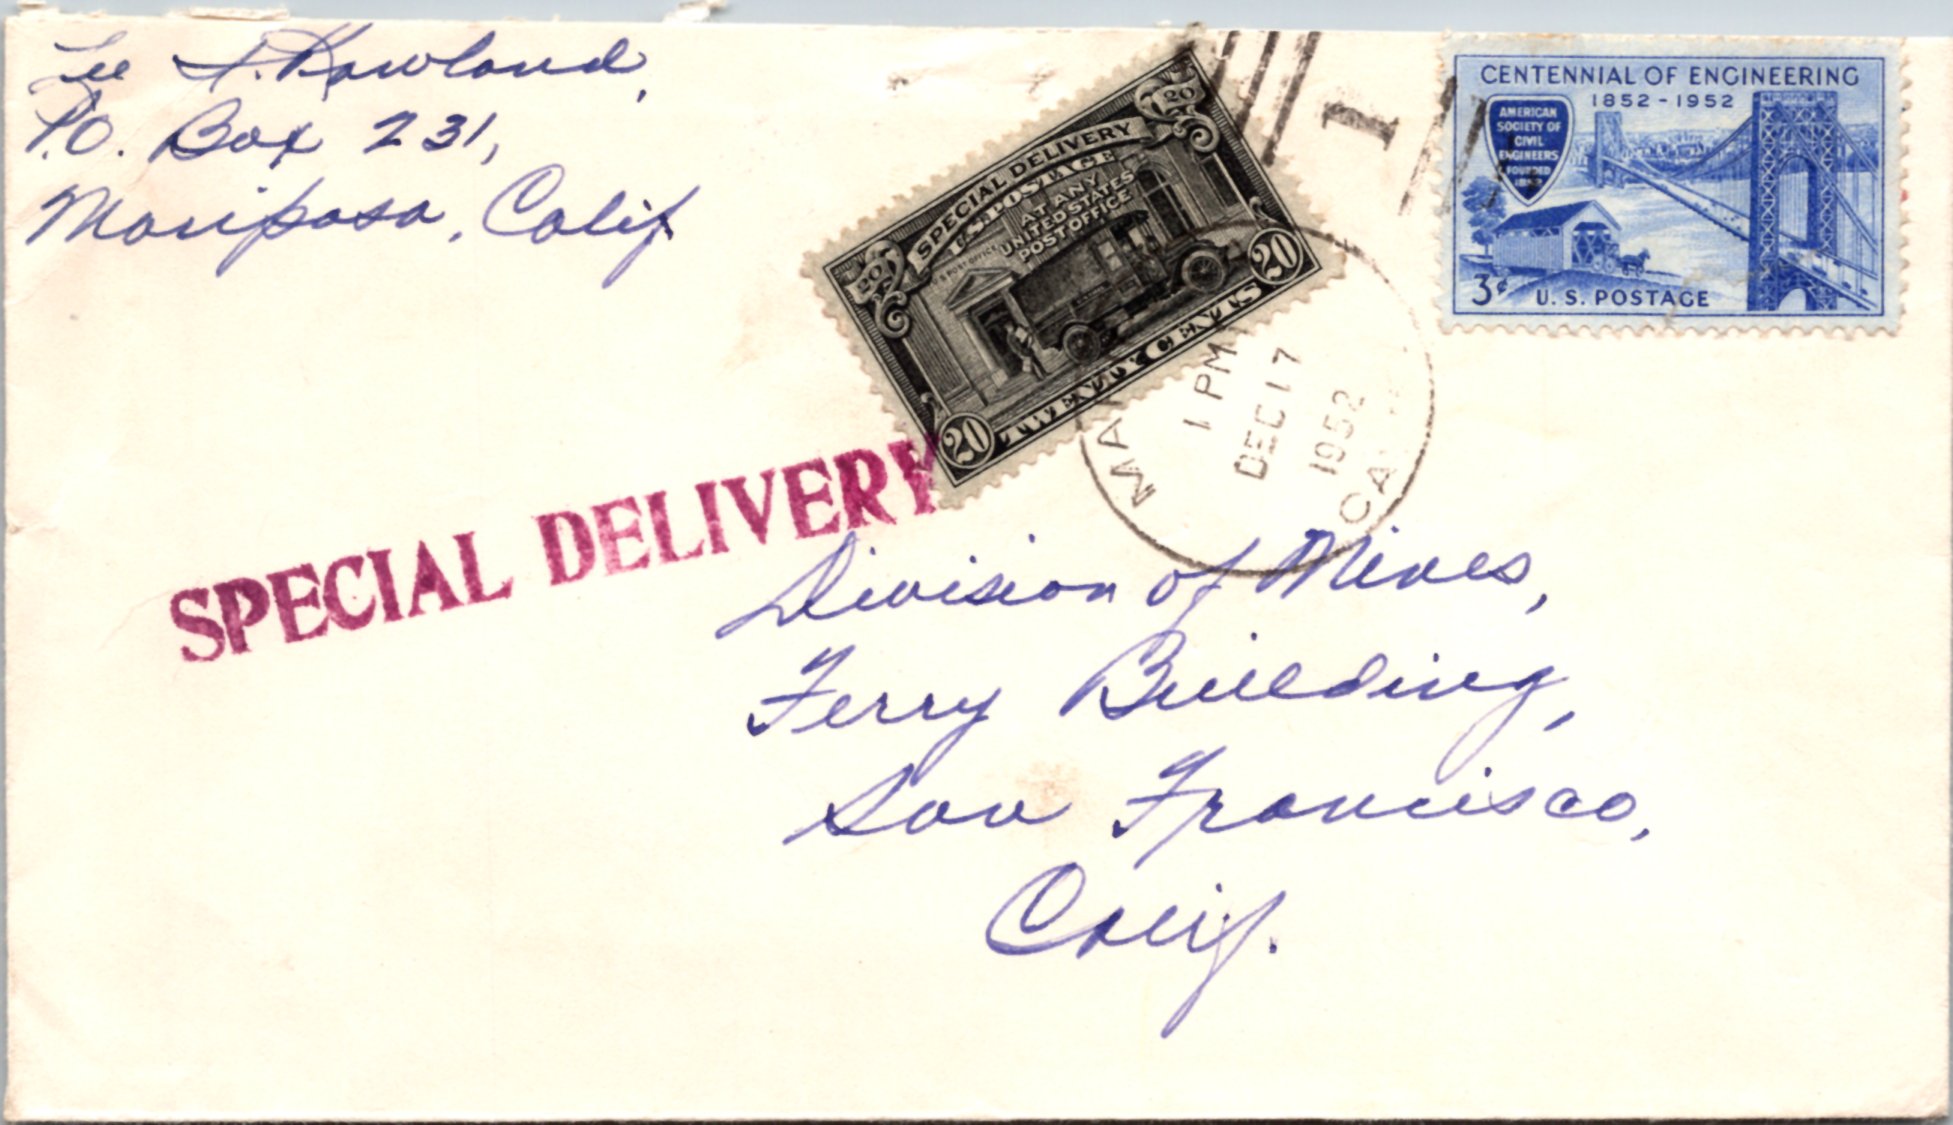 Lee A. Rowland,
P.O. Box 231,
Mariposa, Calif
20
20
SPECIAL DELIVERY
U.S. POSTAGE
AT ANY
UNITED STATES
POST OFFICE
U S POST OFFICE
TWENTY CENTS
20
20
1
CENTENNIAL OF ENGINEERING
1852-1952
AMERICAN
SOCIETY OF
CIVIL
ENGINEERS
FOUNDED
1852
3¢ U. S. POSTAGE
1 PM
DEC 17
1952
SPECIAL DELIVERY
Division of Mines,
Ferry Building,
San Francisco,
Calif.